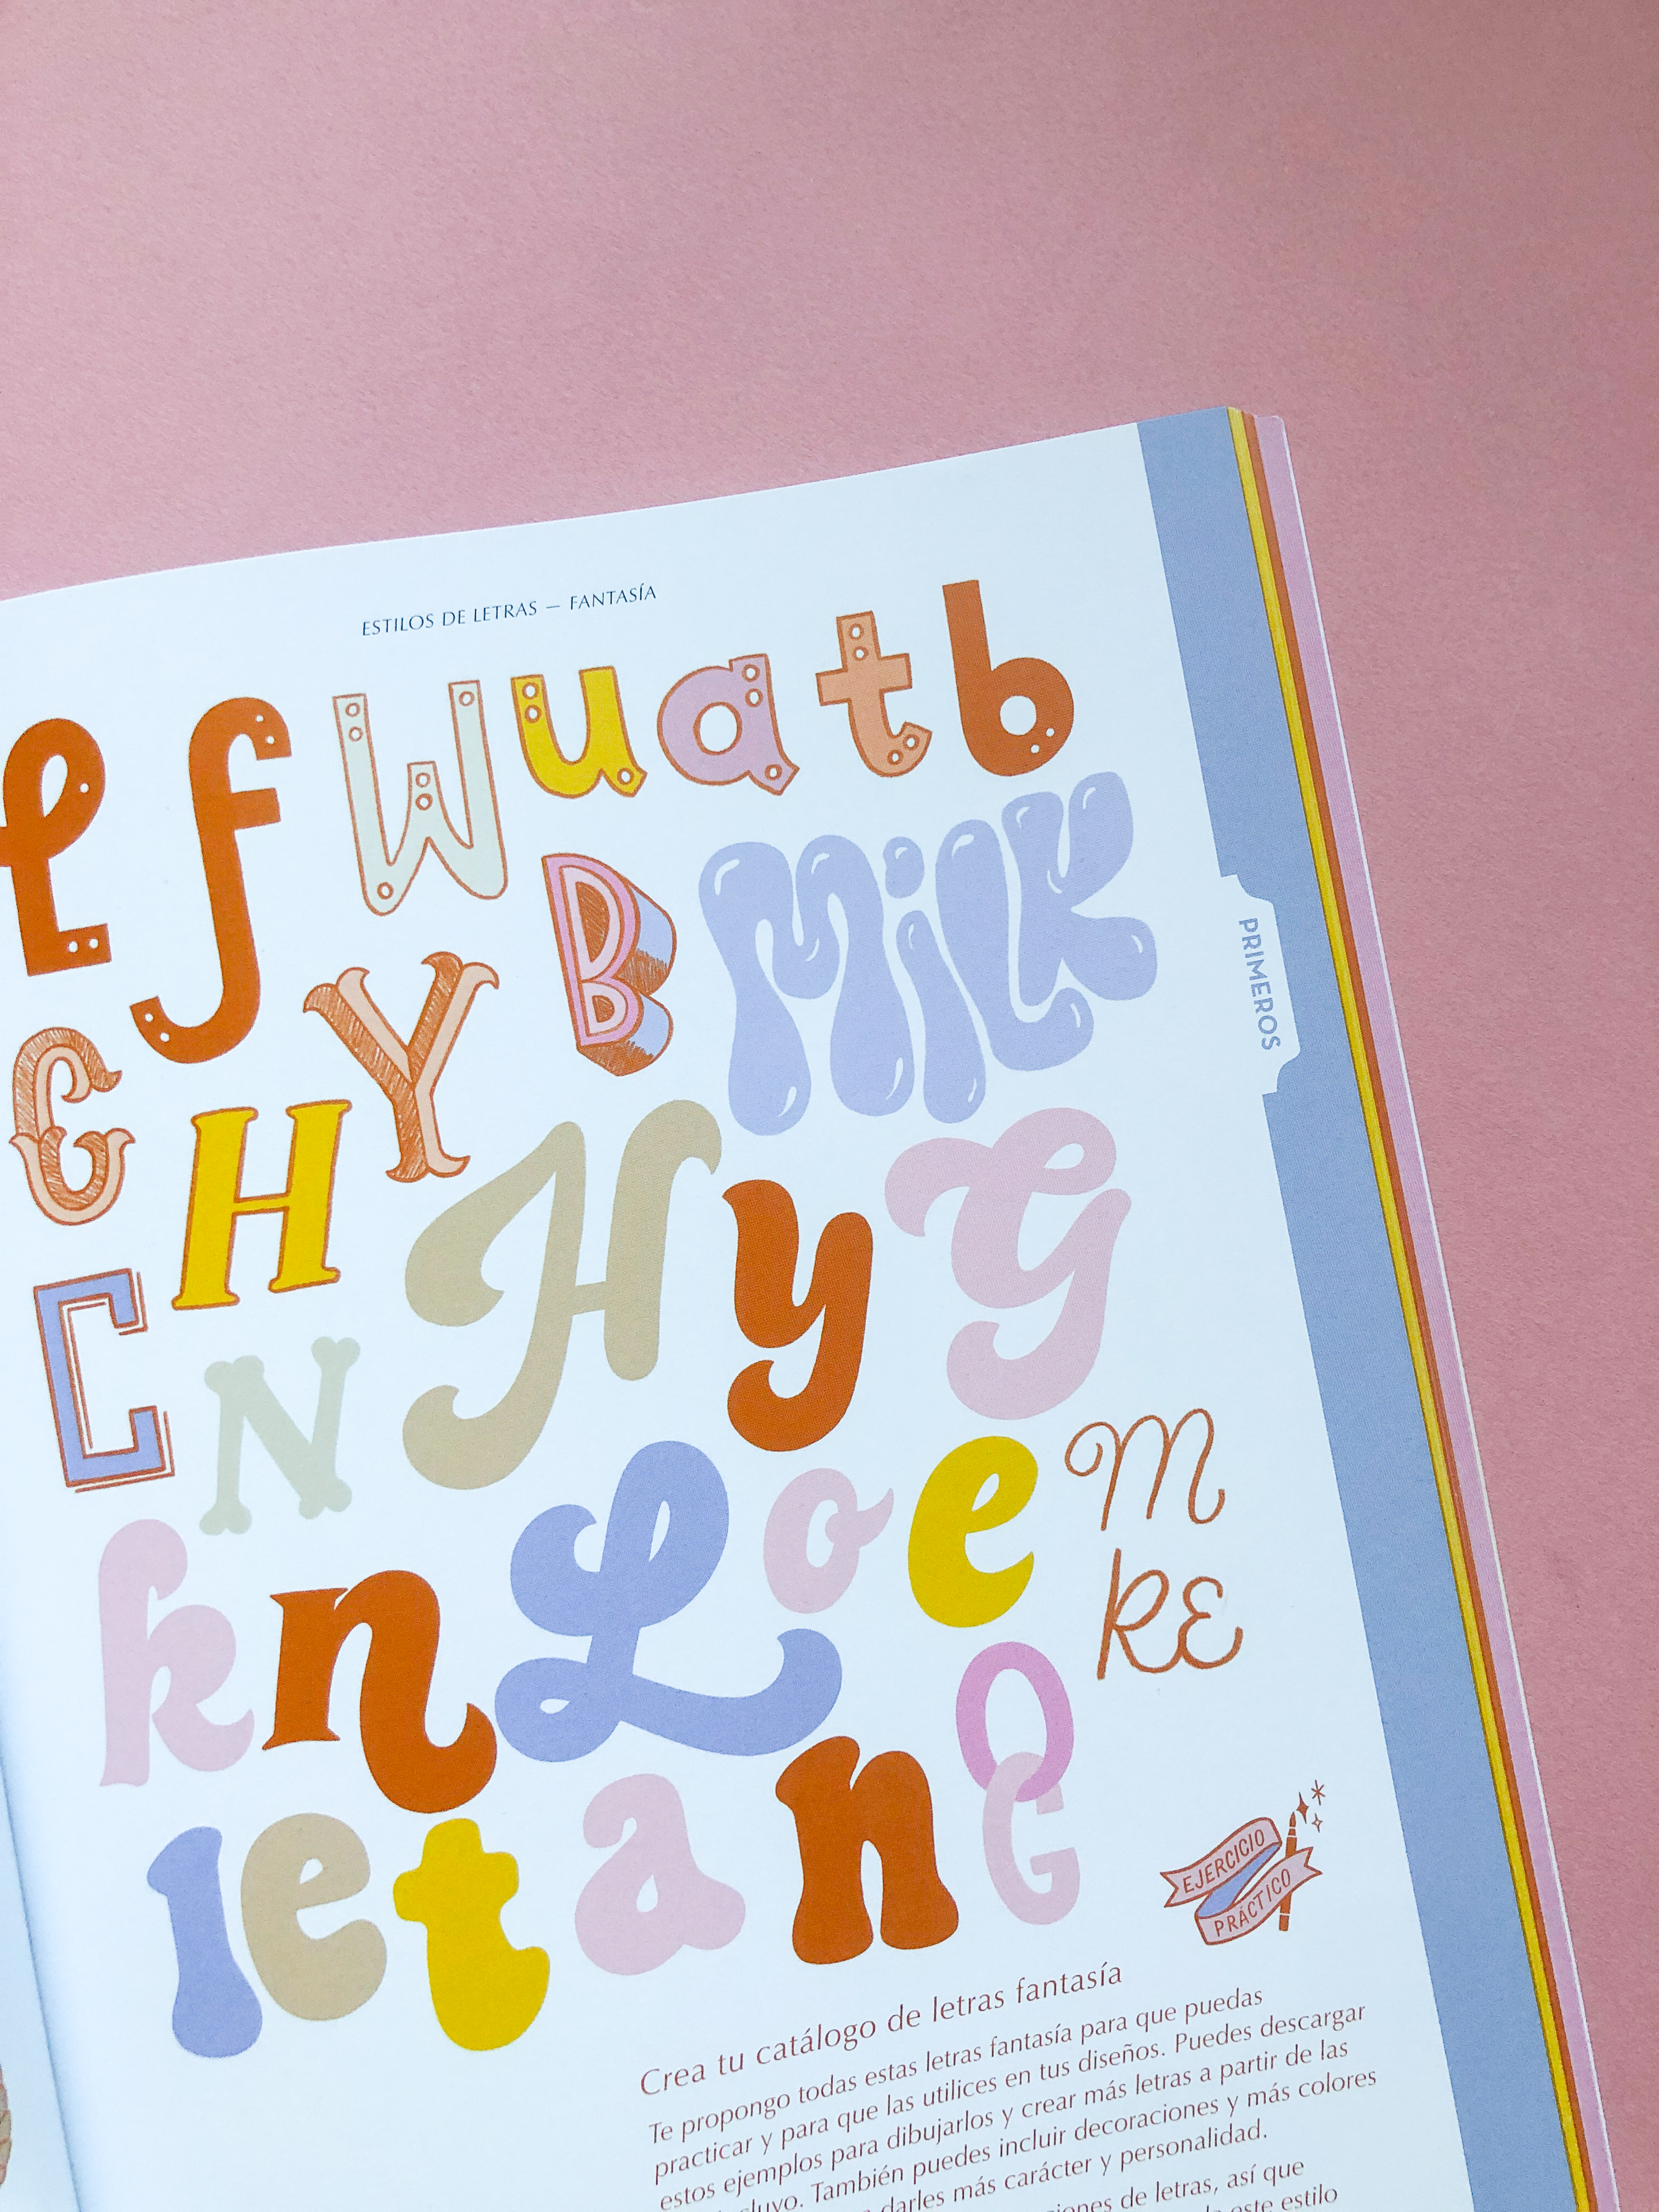 ESTILOS DE LETRAS — FANTASÍA
f W u a t b
G Y B MiLK
H H y G
C N
k n L o e m
RE
l e t a n O G
PRIMEROS
EJERCICIO
PRÁCTICO
Crea tu catálogo de letras fantasía
Te propongo todas estas letras fantasía para que puedas
practicar y para que las utilices en tus diseños. Puedes descargar
estos ejemplos para dibujarlos y crear más letras a partir de las
También puedes incluir decoraciones y más colores
darles más carácter y personalidad.
de letras, así que
este estilo